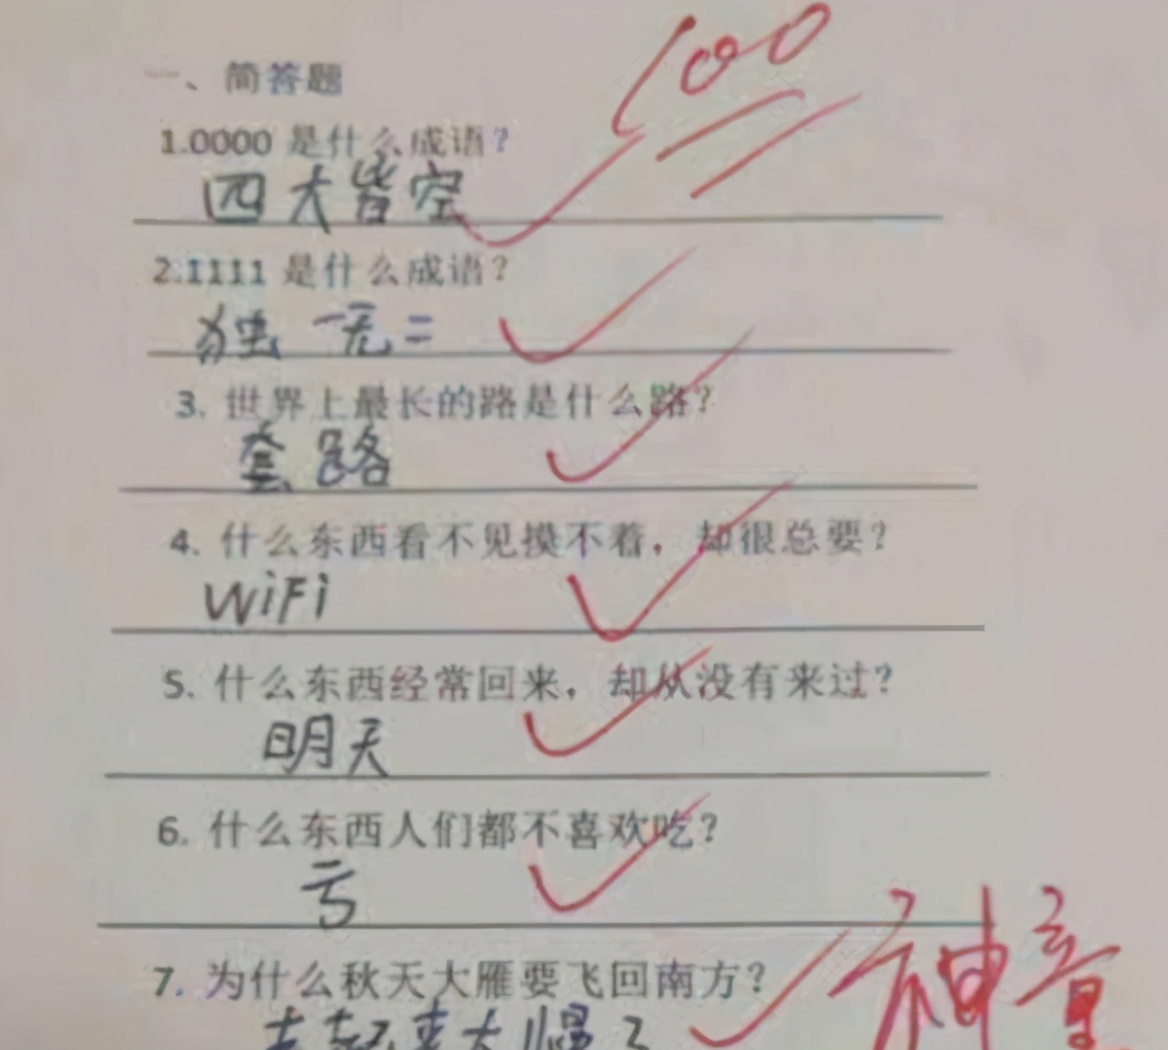 一、简答题
100
1.0000 是什么成语？
四大皆空
2.1111 是什么成语？
独一无二
3. 世界上最长的路是什么路？
套路
4. 什么东西看不见摸不着，却很总要？
WiFi
5. 什么东西经常回来，却从没有来过？
明天
6. 什么东西人们都不喜欢吃？
亏
7. 为什么秋天大雁要飞回南方？
走起来太慢了
神童